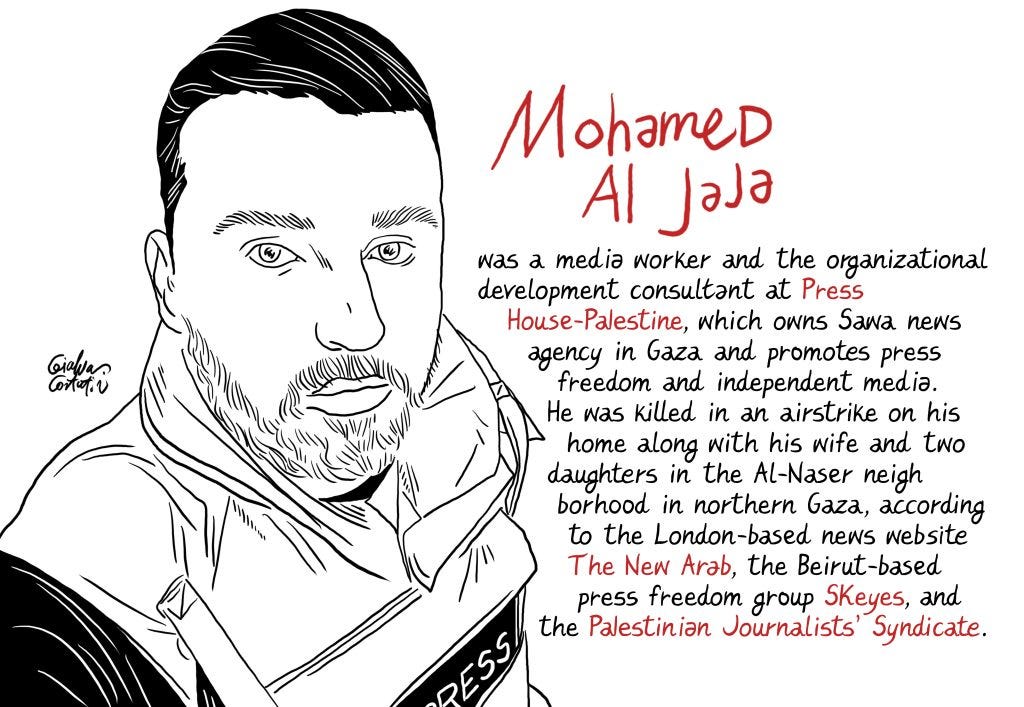 Mohamed
Al Jaja
was a media worker and the organizational
development consultant at Press
House-Palestine, which owns Sawa news
agency in Gaza and promotes press
freedom and independent media.
He was killed in an airstrike on his
home along with his wife and two
daughters in the Al-Naser neigh
borhood in northern Gaza, according
to the London-based news website
The New Arab, the Beirut-based
press freedom group SKeyes, and
the Palestinian Journalists' Syndicate.
PRESS